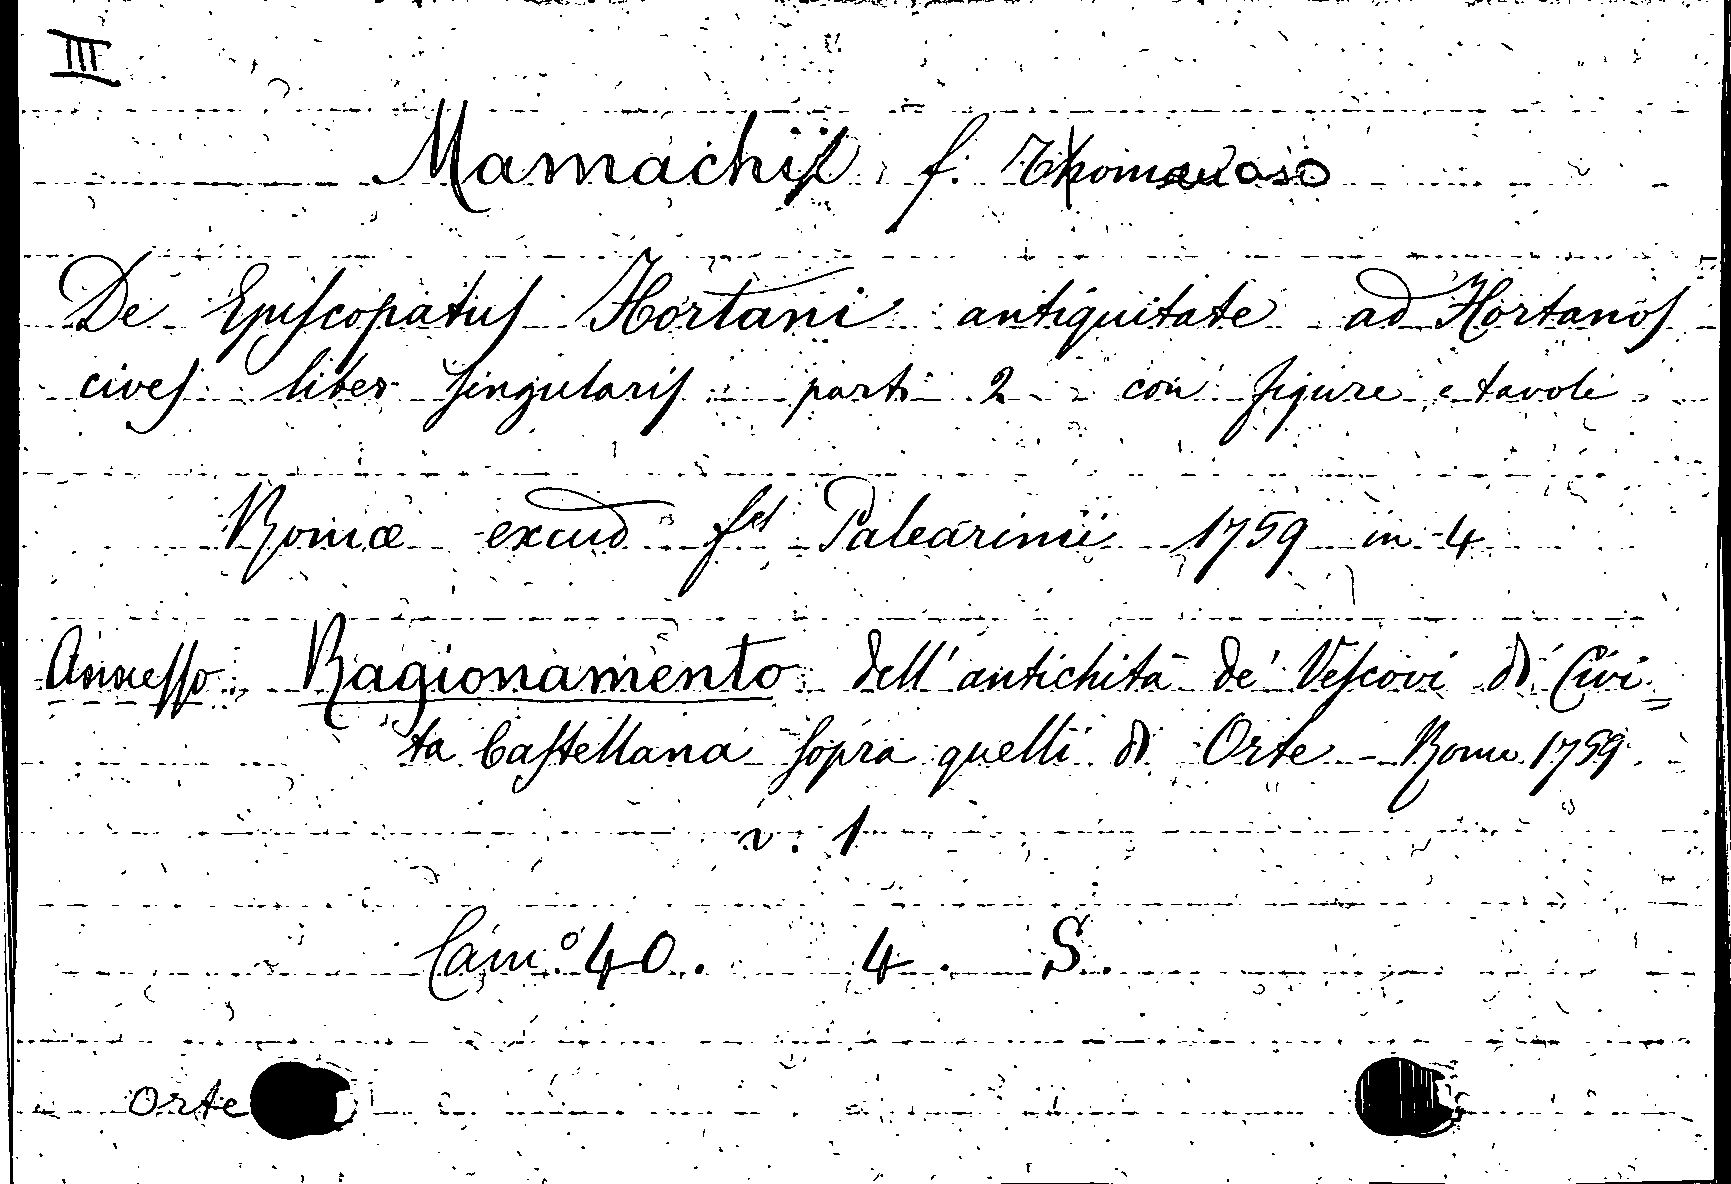 III
Mamachi f. Tommaso
De Episcopatus Hortani antiquitate ad Hortanos
cives liber singularis parti 2 con figure e tavole
Romæ excud fes Palearinii 1759 in 4
Annesso. Ragionamento dell'antichità de' Vescovi di Civi=
ta Castellana sopra quelli di Orte - Roma 1759
v. 1
Cam.° 40. 4. S.
Orte